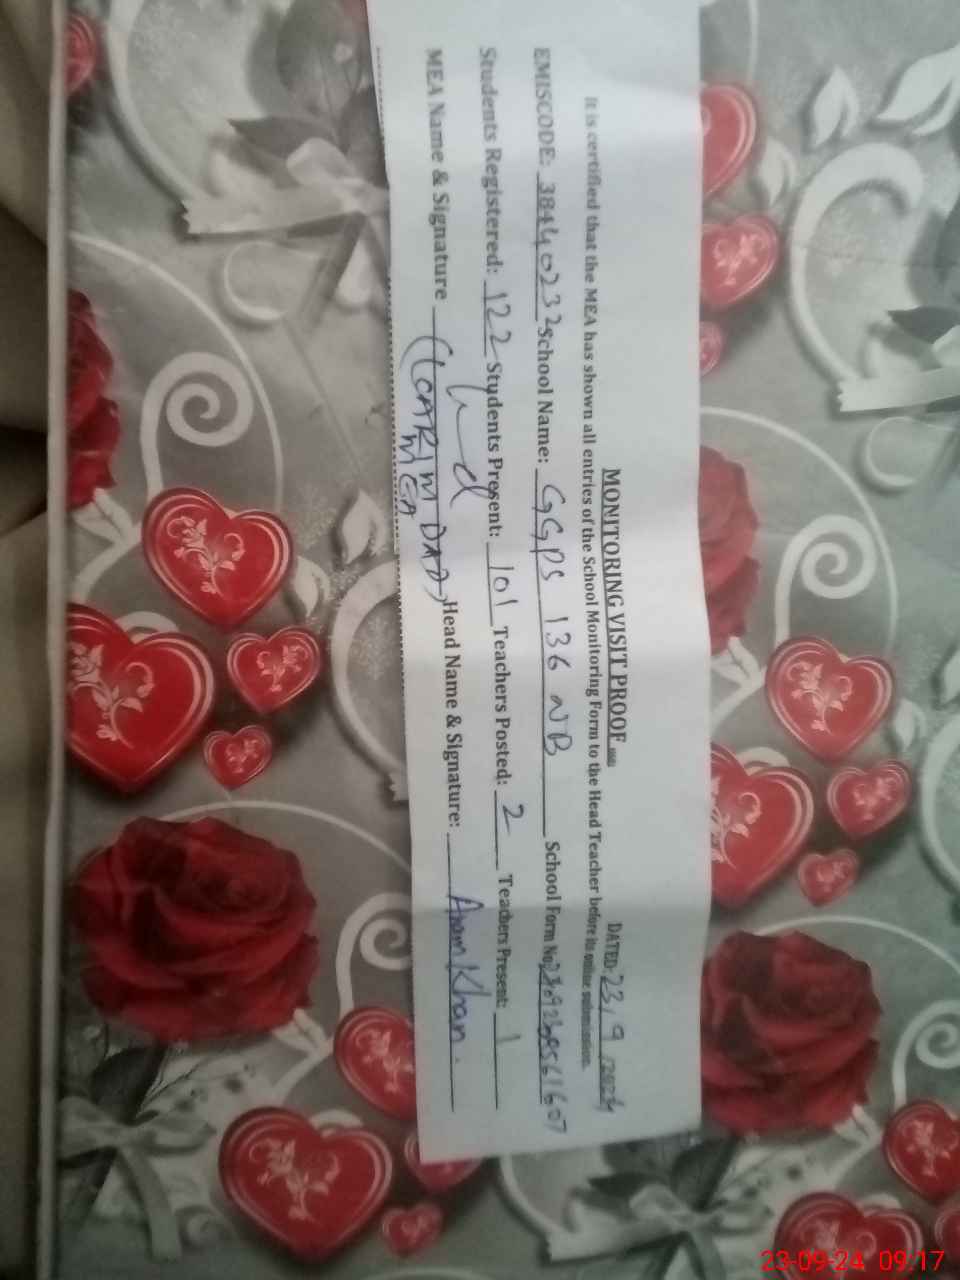 MONITORING VISIT PROOF DATED: 23/9/2024
It is certified that the MEA has shown all entries of the School Monitoring Form to the Head Teacher before its online submission.
EMISCODE: 38440232 School Name: GGPS 136 NB School Form No:
Students Registered: 122 Students Present: 101 Teachers Posted: 2 Teachers Present: 1
MEA Name & Signature (KARIM DAD) Head Name & Signature: Anam Khan.
MEA
23-09-24 09:17